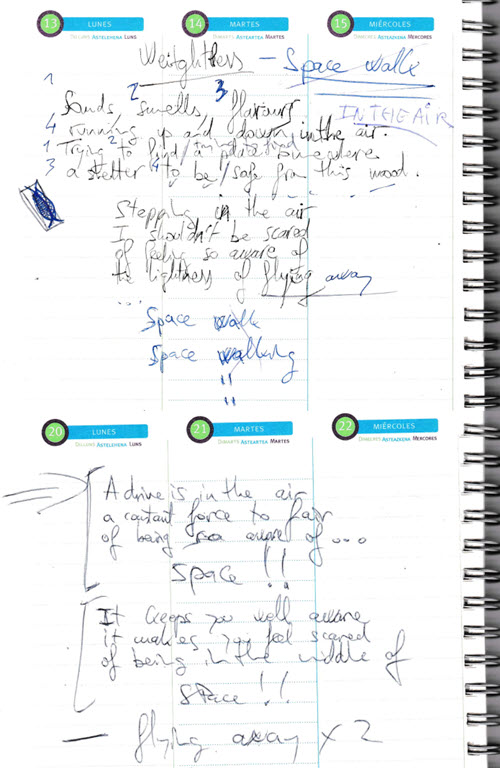 13 LUNES 14 MARTES 15 MIÉRCOLES
DILLUNS ASTELEHENA LUNS DIMARTS ASTEARTEA MARTES DIMECRES ASTEAZKENA MERCORES
Weightness – Space walk
1 2 3
Sands smells, flavours
IN THE AIR
4 running up and down in the air.
1 Trying 2 to find / a place somewhere
3 a shelter 4 to be / safe from this mood.
Stepping in the air
I shouldn't be scared
of being so aware of
the lightness of flying away
...
Space walk
Space walking
"
"
20 LUNES 21 MARTES 22 MIÉRCOLES
DILLUNS ASTELEHENA LUNS DIMARTS ASTEARTEA MARTES DIMECRES ASTEAZKENA MERCORES
A drive is in the air
a constant force to fair
of being so aware of ...
Space !!
It keeps you well aware
it makes you feel scared
of being in the middle of
space !!
— flying away x 2